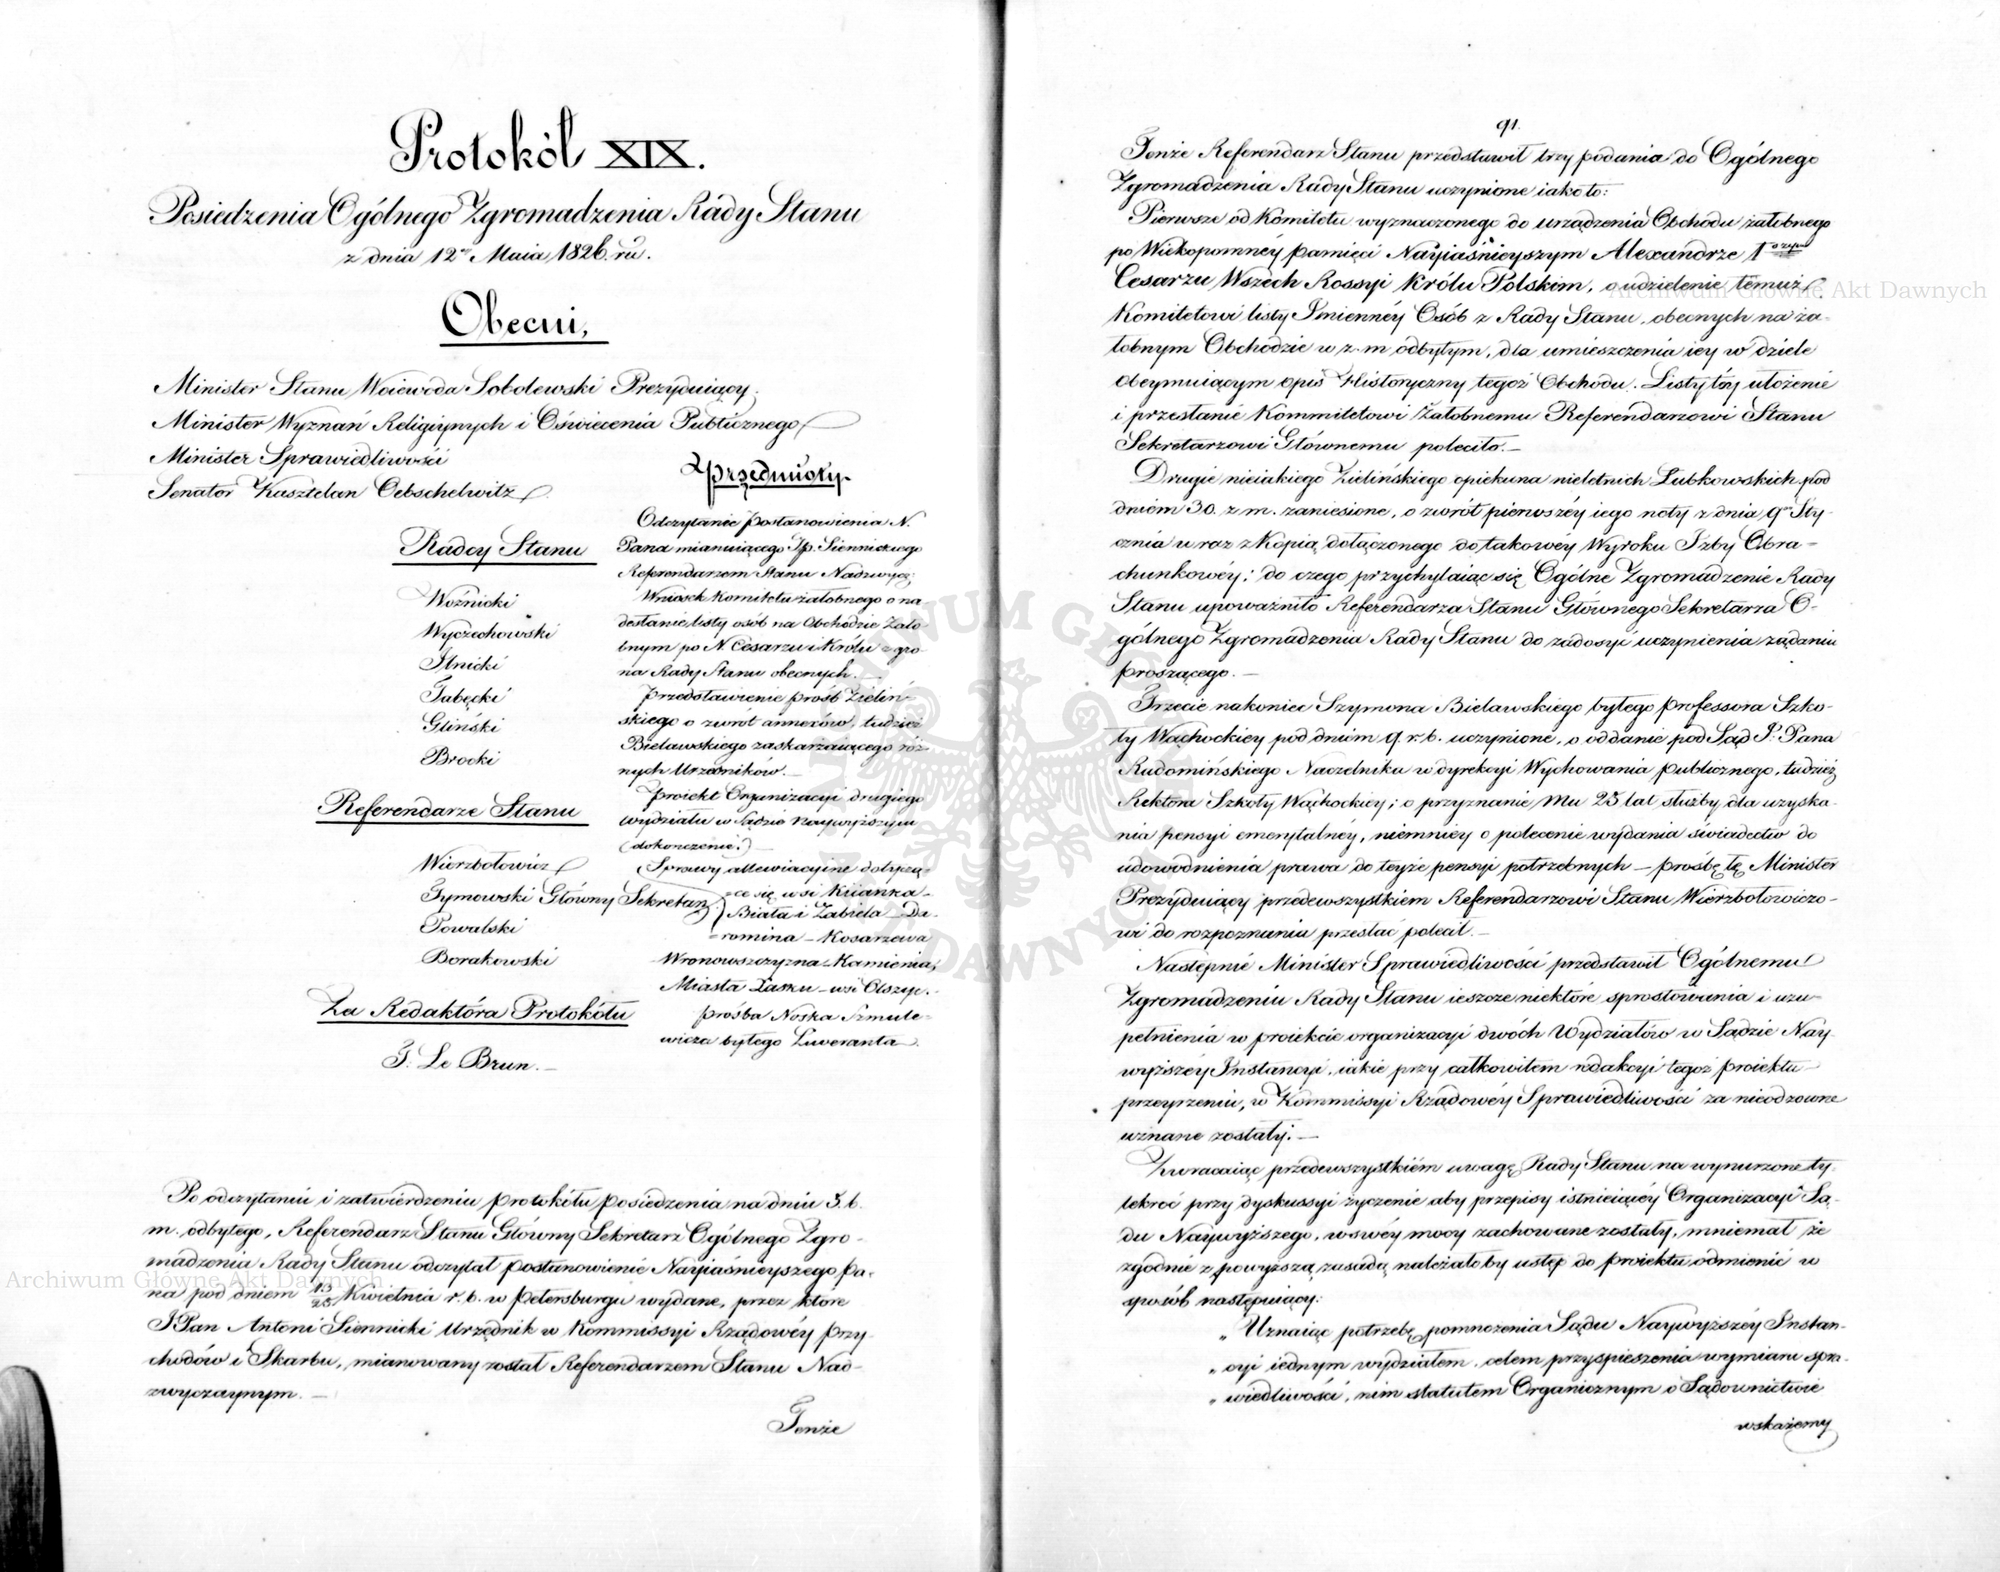 Protokół XIX.
Posiedzenia Ogólnego Zgromadzenia Rady Stanu
z dnia 12º Maia 1826. ru.
Obecni,
Minister Stanu Woiewoda Sobolewski Prezyduiący.
Minister Wyznań Religiynych i Oświecenia Publicznego
Minister Sprawiedliwości
Senator Kasztelan Oebschelwitz
Radcy Stanu
Woźnicki
Wyczechowski
Ilnicki
Tabęcki
Gliński
Brocki
Referendarze Stanu
Wierzbołowicz
Tymowski Główny Sekretarz
Powalski
Borakowski
Za Redaktora Protokółu
T. Le Brun.
Przedmioty.
Odczytanie postanowienia N.
Pana mianuiącego Jp. Siennickiego
Referendarzem Stanu Nadzwycz:
Wniosek Komitetu żałobnego o na-
desłanie listy osób na Obchodzie Żało-
bnym po N. Cesarzu i Królu z gro-
na Rady Stanu obecnych.
Przedstawienie prośb Zieliń-
skiego o zwrót annexów, tudzież
Bielawskiego zaskarżaiącego róż-
nych Urzedników.
Proiekt Organizacyi drugiego
wydziału w Sądzie Naywyższym
(dokonczenie.)
Sprawy allewiacyine dotyczą-
ce się wsi Kiianka-
Biała i Zabiela - Da-
romina - Kosarzewa
Wronowszczyzna - Kamienia,
Miasta Łasku - wsi Olszyc.
prośba Noska Szmule-
wicza byłego Liweranta.
Po odczytaniu i zatwierdzeniu protokółu posiedzenia na dniu 5. b.
m. odbytego, Referendarz Stanu Główny Sekretarz Ogólnego Zgro-
madzenia Rady Stanu odczytał postanowienie Nayiaśnieyszego Pa-
na pod dniem 13/25 Kwietnia r. b. w Petersburgu wydane, przez które
JPan Antoni Siennicki Urzędnik w Kommissyi Rządowéy Przy-
chodów i Skarbu, mianowany został Referendarzem Stanu Nad-
zwyczaynym.
Tenże
91.
Tenże Referendarz Stanu przedstawił trzy podania do Ogólnego
Zgromadzenia Rady Stanu uczynione iako to:
Pierwsze od Komitetu wyznaczonego do urządzenia Obchodu żałobnego
po Wiekopomnéy pamięci Nayiaśnieyszym Alexandrze 1
Cesarzu Wszech Rossyi Królu Polskim, o udzielenie temuż
Komitetowi listy Imiennéy Osób z Rady Stanu, obecnych na ża-
łobnym Obchodzie w z. m odbytym, dla umieszczenia iéy w dziele
obeymuiącym opis Historyczny tegoż Obchodu. Listy téy ułożenie
i przesłanie Kommitetowi Żałobnemu Referendarzowi Stanu
Sekretarzowi Głównemu polecito.
Drugie nieiakiego Zielińskiego opiekuna nieletnich Łubkowskich pod
dniem 30. z m. zaniesione, o zwrót pierwszéy iego noty z dnia 9º Sty-
cznia wraz z Kopią dołączonego do takowéy Wyroku Izby Obra-
chunkowéy; do czego przychylaiąc się Ogólne Zgromadzenie Rady
Stanu upoważniło Referendarza Stanu Głównego Sekretarza O-
gólnego Zgromadzenia Rady Stanu do zadosyć uczynienia żądaniu
proszącego.
Trzecie nakoniec Szymona Bielawskiego byłego Professora Szko-
ły Wąchockiey pod dniem 9 r. b. uczynione, o oddanie pod Sąd J. Pana
Radomińskiego Naczelnika w dyrekcyi Wychowania publicznego, tudzież
Rektora Szkoły Wąchockiéy; o przyznanie Mu 25 lat służby dla uzyska-
nia pensyi emerytalnéy, niemniéy o polecenie wydania świadectw do
udowodnienia prawa do teyże pensyi potrzebnych - prośbę tę Minister
Prezyduiący przedewszystkiem Referendarzowi Stanu Wierzbołowiczo-
wi do rozpoznania przesłać polecił.
Następnie Minister Sprawiedliwości przedstawił Ogólnemu
Zgromadzeniu Rady Stanu ieszcze niektóre sprostowania i uzu-
pełnienia w proiekcie organizacyi dwóch Wydziałów w Sądzie Nay-
wyższéy Instancyi, iakie przy całkowitem redakcyi tegoż proiektu
przeyrzeniu, w Kommissyi Rządowéy Sprawiedliwości za nieodzowne
uznane zostały.
Zwracaiąc przedewszystkiém uwagę Rady Stanu na wynurzone ty-
lekroć przy dyskussyi życzenie aby przepisy istnieiącéy Organizacyi Są-
du Naywyższego, w swéy mocy zachowane zostały, mniemał że
zgodnie z powyższą zasadą należałoby ustęp do proiektu odmienić w
sposób następuiący:
„Uznaiąc potrzebę pomnożenia Sądu Naywyższéy Instan-
„cyi iednym wydziałem, celem przyspieszenia wymiaru spra-
„wiedliwości, nim statutem Organicznym o Sądownictwie
wskażemy
Archiwum Główne Akt Dawnych
Archiwum Główne Akt Dawnych
ARCHIWUM GŁÓWNE AKT DAWNYCH